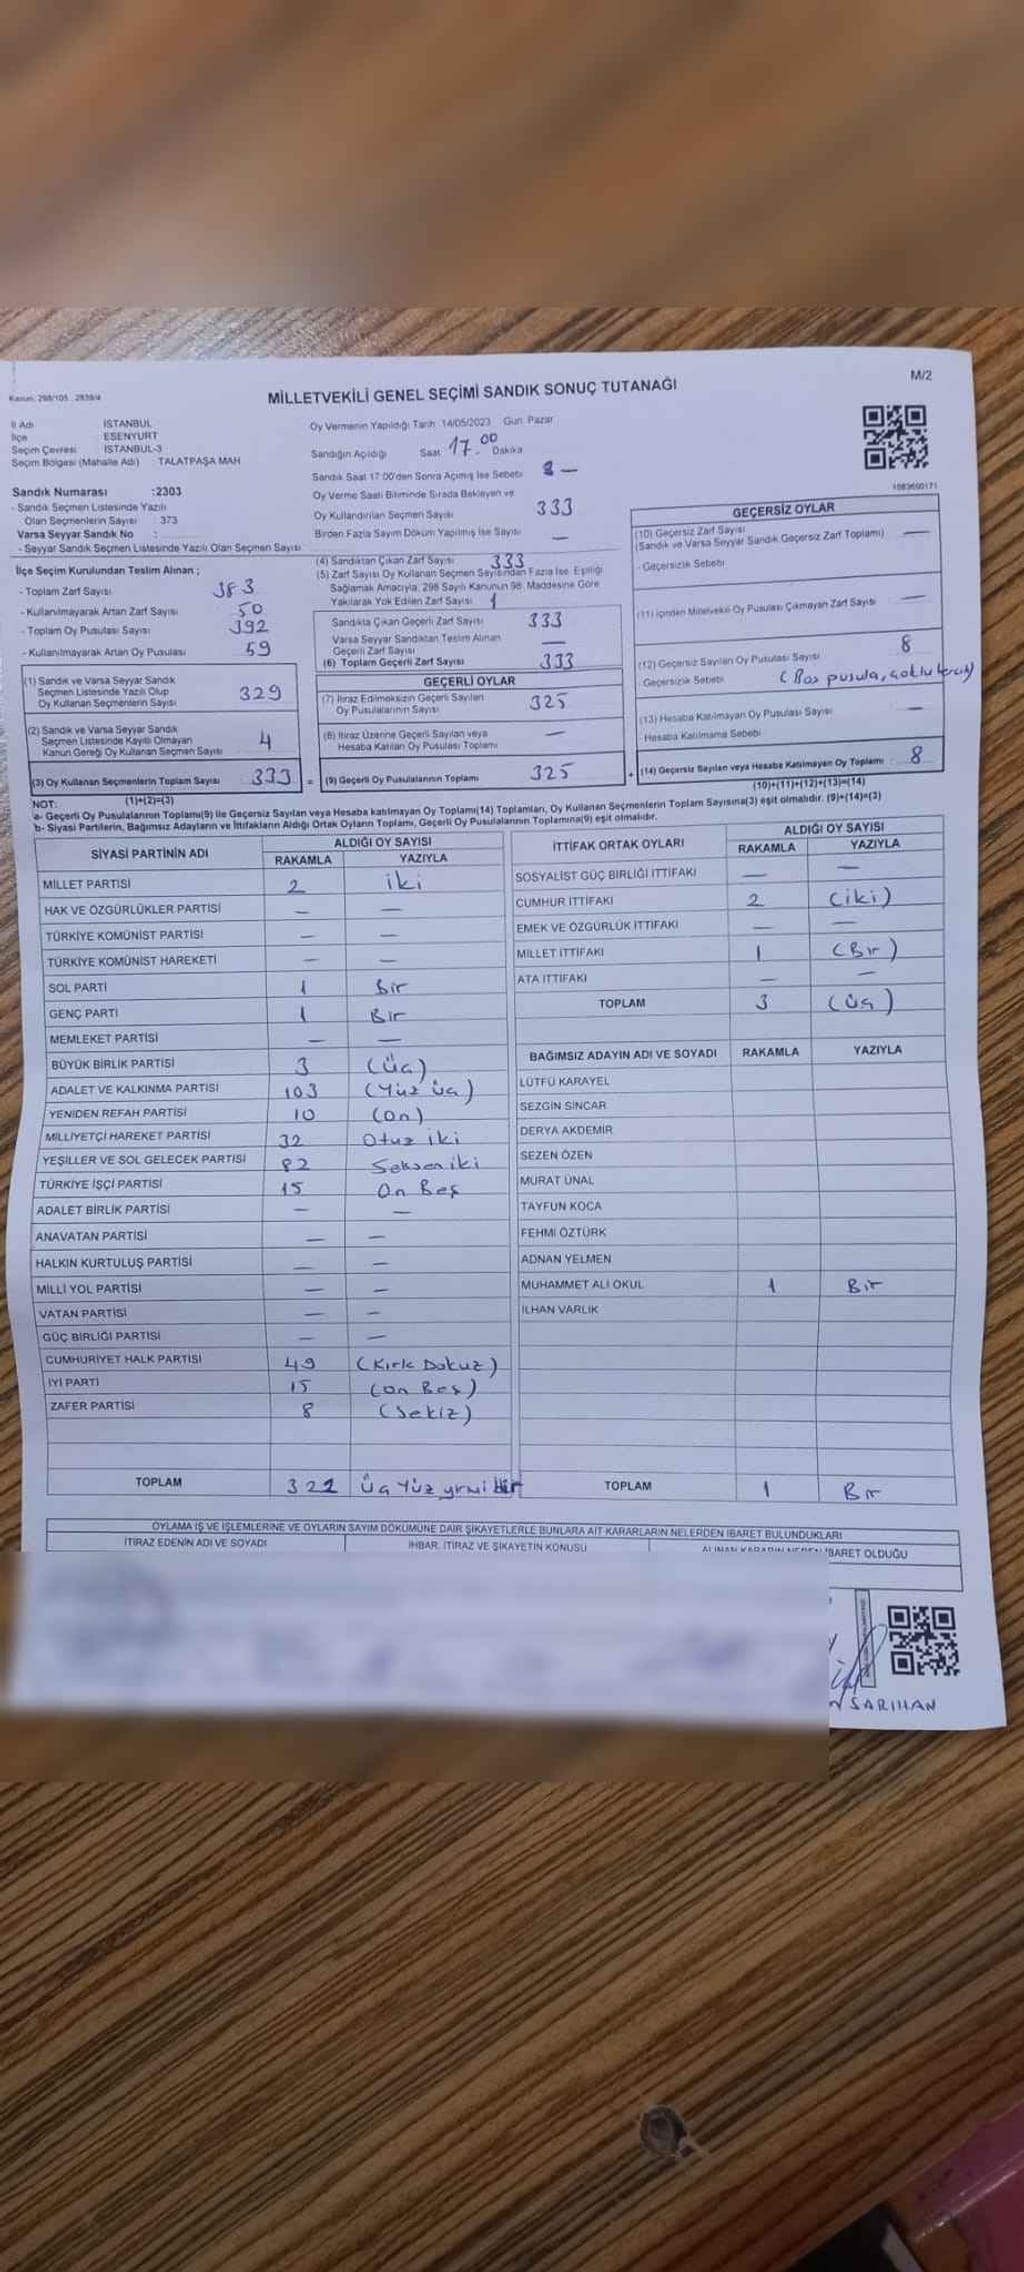 M/2
Kanun: 298/105 , 2839/4
MİLLETVEKİLİ GENEL SEÇİMİ SANDIK SONUÇ TUTANAĞI
İl Adı İSTANBUL
İlçe ESENYURT
Seçim Çevresi İSTANBUL-3
Seçim Bölgesi (Mahalle Adı) : TALATPAŞA MAH
Sandık Numarası :2303
- Sandık Seçmen Listesinde Yazılı
Olan Seçmenlerin Sayısı : 373
Varsa Seyyar Sandık No :
- Seyyar Sandık Seçmen Listesinde Yazılı Olan Seçmen Sayısı
İlçe Seçim Kurulundan Teslim Alınan ;
- Toplam Zarf Sayısı 383
- Kullanılmayarak Artan Zarf Sayısı 50
- Toplam Oy Pusulası Sayısı 392
- Kullanılmayarak Artan Oy Pusulası 59
(1) Sandık ve Varsa Seyyar Sandık
Seçmen Listesinde Yazılı Olup
Oy Kullanan Seçmenlerin Sayısı 329
(2) Sandık ve Varsa Seyyar Sandık
Seçmen Listesinde Kayıtlı Olmayan
Kanun Gereği Oy Kullanan Seçmen Sayısı 4
(3) Oy Kullanan Seçmenlerin Toplam Sayısı 333 =
(1)+(2)=(3)
Oy Vermenin Yapıldığı Tarih: 14/05/2023 Gün: Pazar
Sandığın Açıldığı Saat 17.00 Dakika
Sandık Saat 17:00'den Sonra Açılmış İse Sebebi —
Oy Verme Saati Bitiminde Sırada Bekleyen ve
Oy Kullandırılan Seçmen Sayısı 333
Birden Fazla Sayım Döküm Yapılmış İse Sayısı —
(4) Sandıktan Çıkan Zarf Sayısı 333
(5) Zarf Sayısı Oy Kullanan Seçmen Sayısından Fazla İse, Eşitliği
Sağlamak Amacıyla, 298 Sayılı Kanunun 98. Maddesine Göre
Yakılarak Yok Edilen Zarf Sayısı
Sandıkta Çıkan Geçerli Zarf Sayısı 333
Varsa Seyyar Sandıktan Teslim Alınan
Geçerli Zarf Sayısı —
(6) Toplam Geçerli Zarf Sayısı 333
GEÇERLİ OYLAR
(7) İtiraz Edilmeksizin Geçerli Sayılan
Oy Pusulalarının Sayısı 325
(8) İtiraz Üzerine Geçerli Sayılan veya
Hesaba Katılan Oy Pusulası Toplamı —
(9) Geçerli Oy Pusulalarının Toplamı 325 +
1083600171
GEÇERSİZ OYLAR
(10) Geçersiz Zarf Sayısı
(Sandık ve Varsa Seyyar Sandık Geçersiz Zarf Toplamı) —
- Geçersizlik Sebebi
(11) İçinden Milletvekili Oy Pusulası Çıkmayan Zarf Sayısı —
(12) Geçersiz Sayılan Oy Pusulası Sayısı 8
- Geçersizlik Sebebi (Boş pusula, çoklu tercih)
(13) Hesaba Katılmayan Oy Pusulası Sayısı —
- Hesaba Katılmama Sebebi
(14) Geçersiz Sayılan veya Hesaba Katılmayan Oy Toplamı : 8
(10)+(11)+(12)+(13)=(14)
NOT:
a- Geçerli Oy Pusulalarının Toplamı(9) ile Geçersiz Sayılan veya Hesaba katılmayan Oy Toplamı(14) Toplamları, Oy Kullanan Seçmenlerin Toplam Sayısına(3) eşit olmalıdır. (9)+(14)=(3)
b- Siyasi Partilerin, Bağımsız Adayların ve İttifakların Aldığı Ortak Oyların Toplamı, Geçerli Oy Pusulalarının Toplamına(9) eşit olmalıdır.
SİYASİ PARTİNİN ADI ALDIĞI OY SAYISI
RAKAMLA YAZIYLA
MİLLET PARTİSİ 2 iki
HAK VE ÖZGÜRLÜKLER PARTİSİ — —
TÜRKİYE KOMÜNİST PARTİSİ — —
TÜRKİYE KOMÜNİST HAREKETİ — —
SOL PARTİ 1 Bir
GENÇ PARTİ 1 Bir
MEMLEKET PARTİSİ — —
BÜYÜK BİRLİK PARTİSİ 3 (Üç)
ADALET VE KALKINMA PARTİSİ 103 (Yüz üç)
YENİDEN REFAH PARTİSİ 10 (on)
MİLLİYETÇİ HAREKET PARTİSİ 32 Otuz iki
YEŞİLLER VE SOL GELECEK PARTİSİ 82 Seksen iki
TÜRKİYE İŞÇİ PARTİSİ 15 On Beş
ADALET BİRLİK PARTİSİ — —
ANAVATAN PARTİSİ — —
HALKIN KURTULUŞ PARTİSİ — —
MİLLİ YOL PARTİSİ — —
VATAN PARTİSİ — —
GÜÇ BİRLİĞİ PARTİSİ — —
CUMHURİYET HALK PARTİSİ 49 (Kırk Dokuz)
İYİ PARTİ 15 (On Beş)
ZAFER PARTİSİ 8 (Sekiz)
TOPLAM 321 Üç Yüz yirmi bir
İTTİFAK ORTAK OYLARI ALDIĞI OY SAYISI
RAKAMLA YAZIYLA
SOSYALİST GÜÇ BİRLİĞİ İTTİFAKI — —
CUMHUR İTTİFAKI 2 (iki)
EMEK VE ÖZGÜRLÜK İTTİFAKI — —
MİLLET İTTİFAKI 1 (Bir)
ATA İTTİFAKI — —
TOPLAM 3 (üç)
BAĞIMSIZ ADAYIN ADI VE SOYADI RAKAMLA YAZIYLA
LÜTFÜ KARAYEL
SEZGİN SİNCAR
DERYA AKDEMİR
SEZEN ÖZEN
MURAT ÜNAL
TAYFUN KOCA
FEHMİ ÖZTÜRK
ADNAN YELMEN
MUHAMMET ALİ OKUL 1 Bir
İLHAN VARLIK
TOPLAM 1 Bir
OYLAMA İŞ VE İŞLEMLERİNE VE OYLARIN SAYIM DÖKÜMÜNE DAİR ŞİKAYETLERLE BUNLARA AİT KARARLARIN NELERDEN İBARET BULUNDUKLARI
İTİRAZ EDENİN ADI VE SOYADI İHBAR, İTİRAZ VE ŞİKAYETİN KONUSU ALINAN KARARIN NEDEN İBARET OLDUĞU
SARIHAN